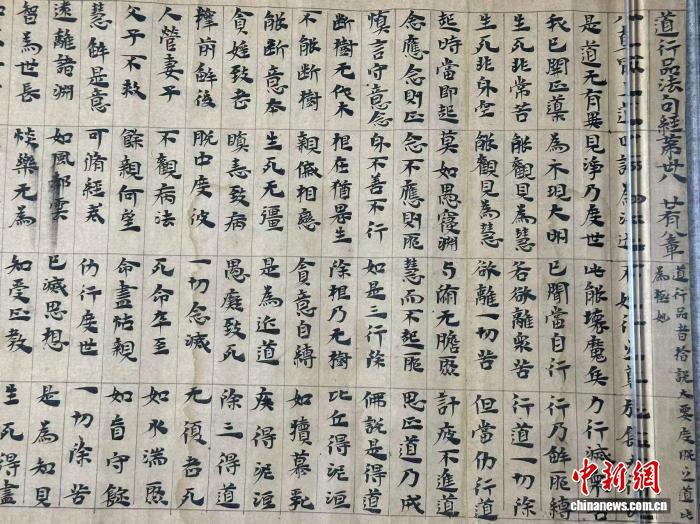 道行品法句經第卅八 廿有八章 道行品者指說大要度脫之道此為極妙
是道无有異 見淨乃度世 此能壞魔兵 力行滅
我已開正道 為示現大明 已聞當自行 行乃解邪縛
生死非常苦 能觀見為慧 若欲離眾苦 行道一切除
生死非身空 能觀見為慧 欲離一切苦 但當仂行道
起時當即起 莫如愚覆淵 与无瞻聚 計疲不進道
念應念則正 念不應則邪 慧而不起邪 思正道乃成
慎言守意念 身不善不行 如是三行除 佛說是得道
断樹无伐本 根在猶復生 除根乃无樹 比丘得泥洹
不能断樹 親慼相戀 貪意自縛 如犢慕乳
能断意本 生死无彊 是為近道 疾得泥洹
貪婬致老 瞋恚致病 愚癡致死 除三得道
釋前解後 脫中度彼 一切念滅 无復老死
人營妻子 不觀病法 死命卒至 如水湍聚
父子不救 餘親何望 命盡怙親 如盲守燈
慧解是意 可脩經戒 仂行度世 一切除苦
遠離諸淵 如風却雲 已滅思想 是為知見
智為世長 惔樂无為 知受正教 生死得盡
中新网
www.chinanews.com